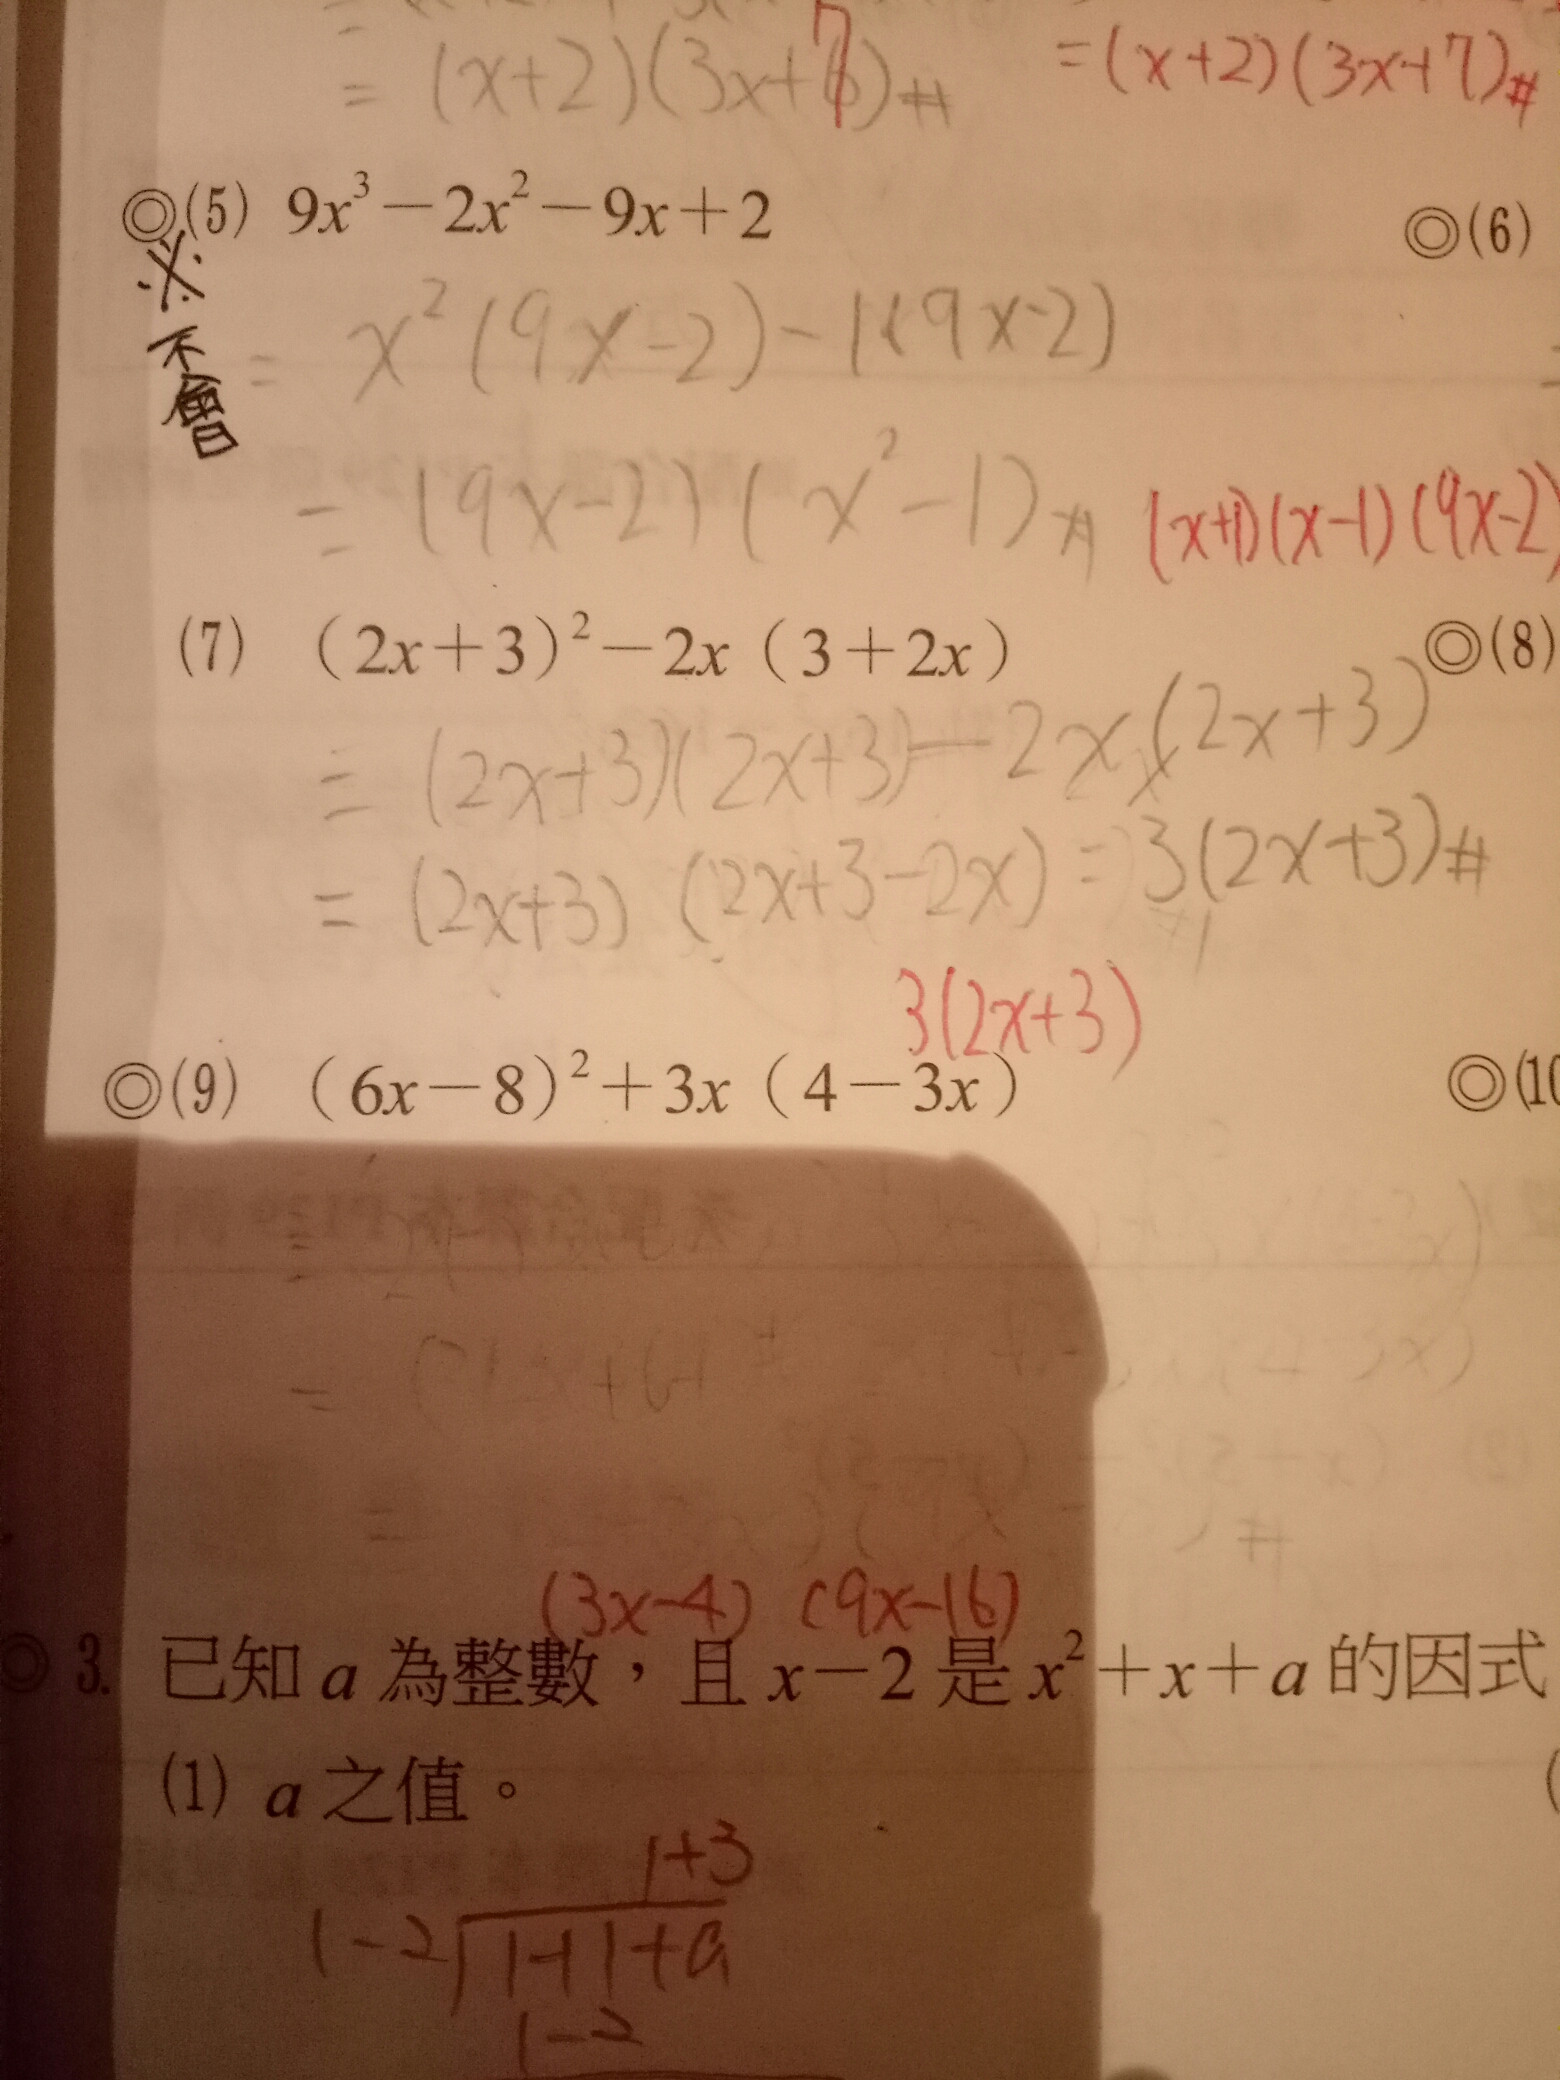 = (x+2)(3x+7)# =(x+2)(3x+7)#
◎(5) 9x³-2x²-9x+2 ◎(6)
※不會
= x²(9x-2)-1(9x-2)
= (9x-2)(x²-1)# (x+1)(x-1)(9x-2)
(7) (2x+3)²-2x(3+2x) ◎(8)
= (2x+3)(2x+3)-2x(2x+3)
= (2x+3)(2x+3-2x) = 3(2x+3)#
3(2x+3)
◎(9) (6x-8)²+3x(4-3x) ◎(10
(3x-4) (9x-16)
◎3. 已知a為整數，且x-2是x²+x+a的因式
(1) a之值。
1+3
1-2 1+1+a
1-2